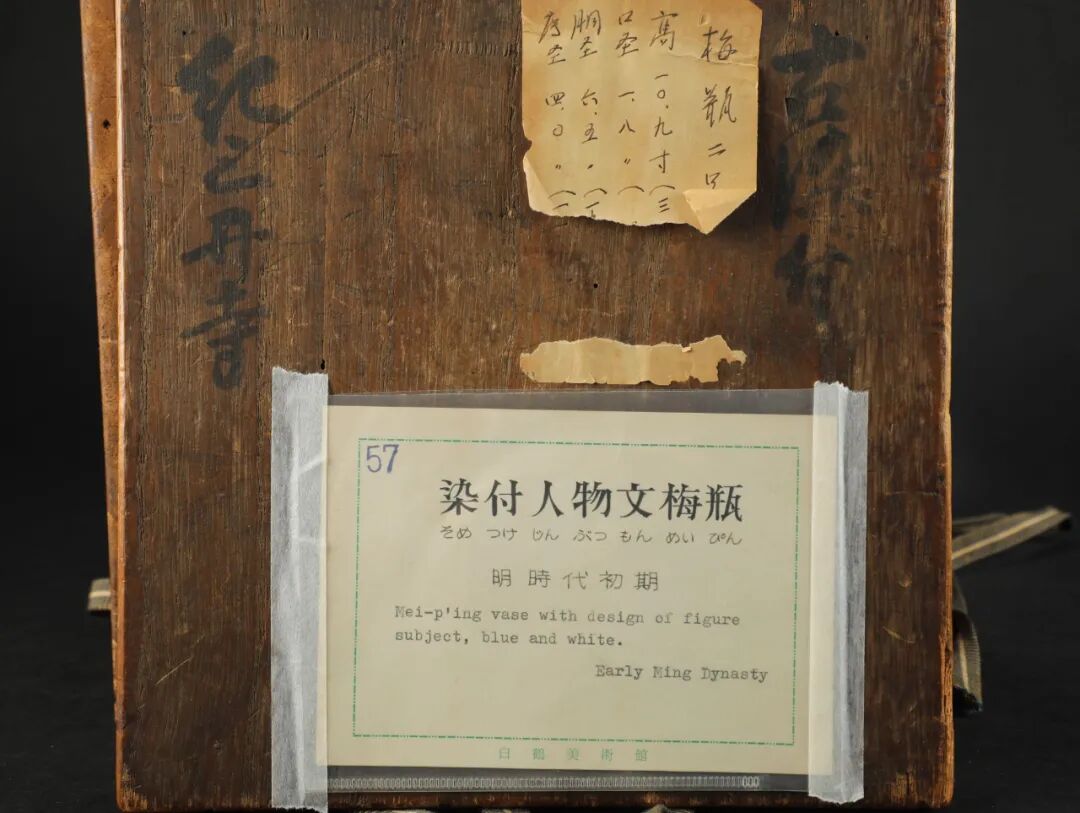 古染付
梅瓶二口
高 一〇.九寸(三
口圣 一.八〃(
胴圣 六.五〃(一
底圣 四.〇〃(一
57
染付人物文梅瓶
そめ つけ じん ぶつ もん めい ぴん
明時代初期
Mei-p'ing vase with design of figure
subject, blue and white.
Early Ming Dynasty
白鶴美術館